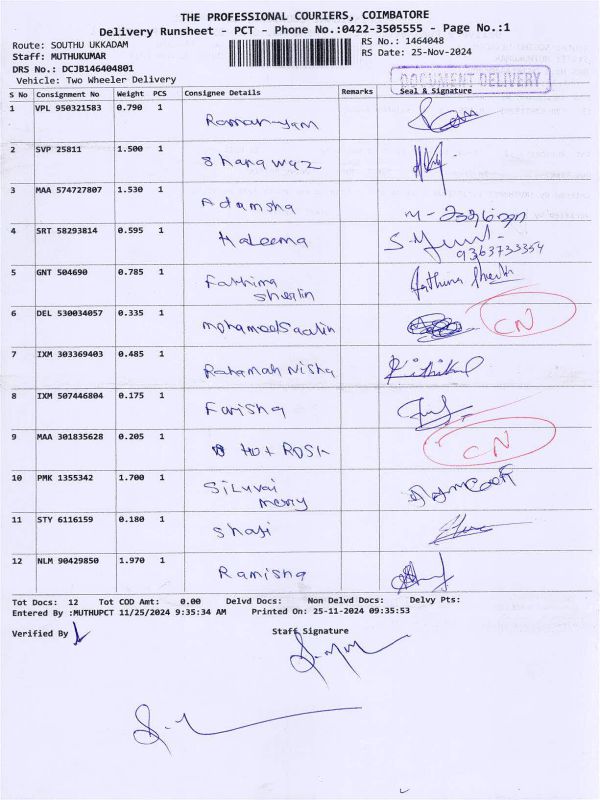 THE PROFESSIONAL COURIERS, COIMBATORE
Delivery Runsheet - PCT - Phone No.:0422-3505555 - Page No.:1
Route: SOUTHU UKKADAM
RS No.: 1464048
Staff: MUTHUKUMAR
RS Date: 25-Nov-2024
DRS No.: DCJB146404801
Vehicle: Two Wheeler Delivery
DOCUMENT DELIVERY
S No Consignment No Weight PCS Consignee Details Remarks Seal & Signature
1 VPL 950321583 0.790 1
2 SVP 25811 1.500 1 Shanawaz
3 MAA 574727807 1.530 1 Adamsha
4 SRT 58293814 0.595 1 Haleema 9363733354
5 GNT 504690 0.785 1 Fathima
Sherlin
6 DEL 530034057 0.335 1 CN
7 IXM 303369403 0.485 1 Rahamah Nisha
8 IXM 507446804 0.175 1 Farisha
9 MAA 301835628 0.205 1 Hot CN
10 PMK 1355342 1.700 1 Siluvai
merry
11 STY 6116159 0.180 1 Shafi
12 NLM 90429850 1.970 1 Ramisha
Tot Docs: 12 Tot COD Amt: 0.00 Delvd Docs: Non Delvd Docs: Delvy Pts:
Entered By :MUTHUPCT 11/25/2024 9:35:34 AM Printed On: 25-11-2024 09:35:53
Verified By
Staff Signature